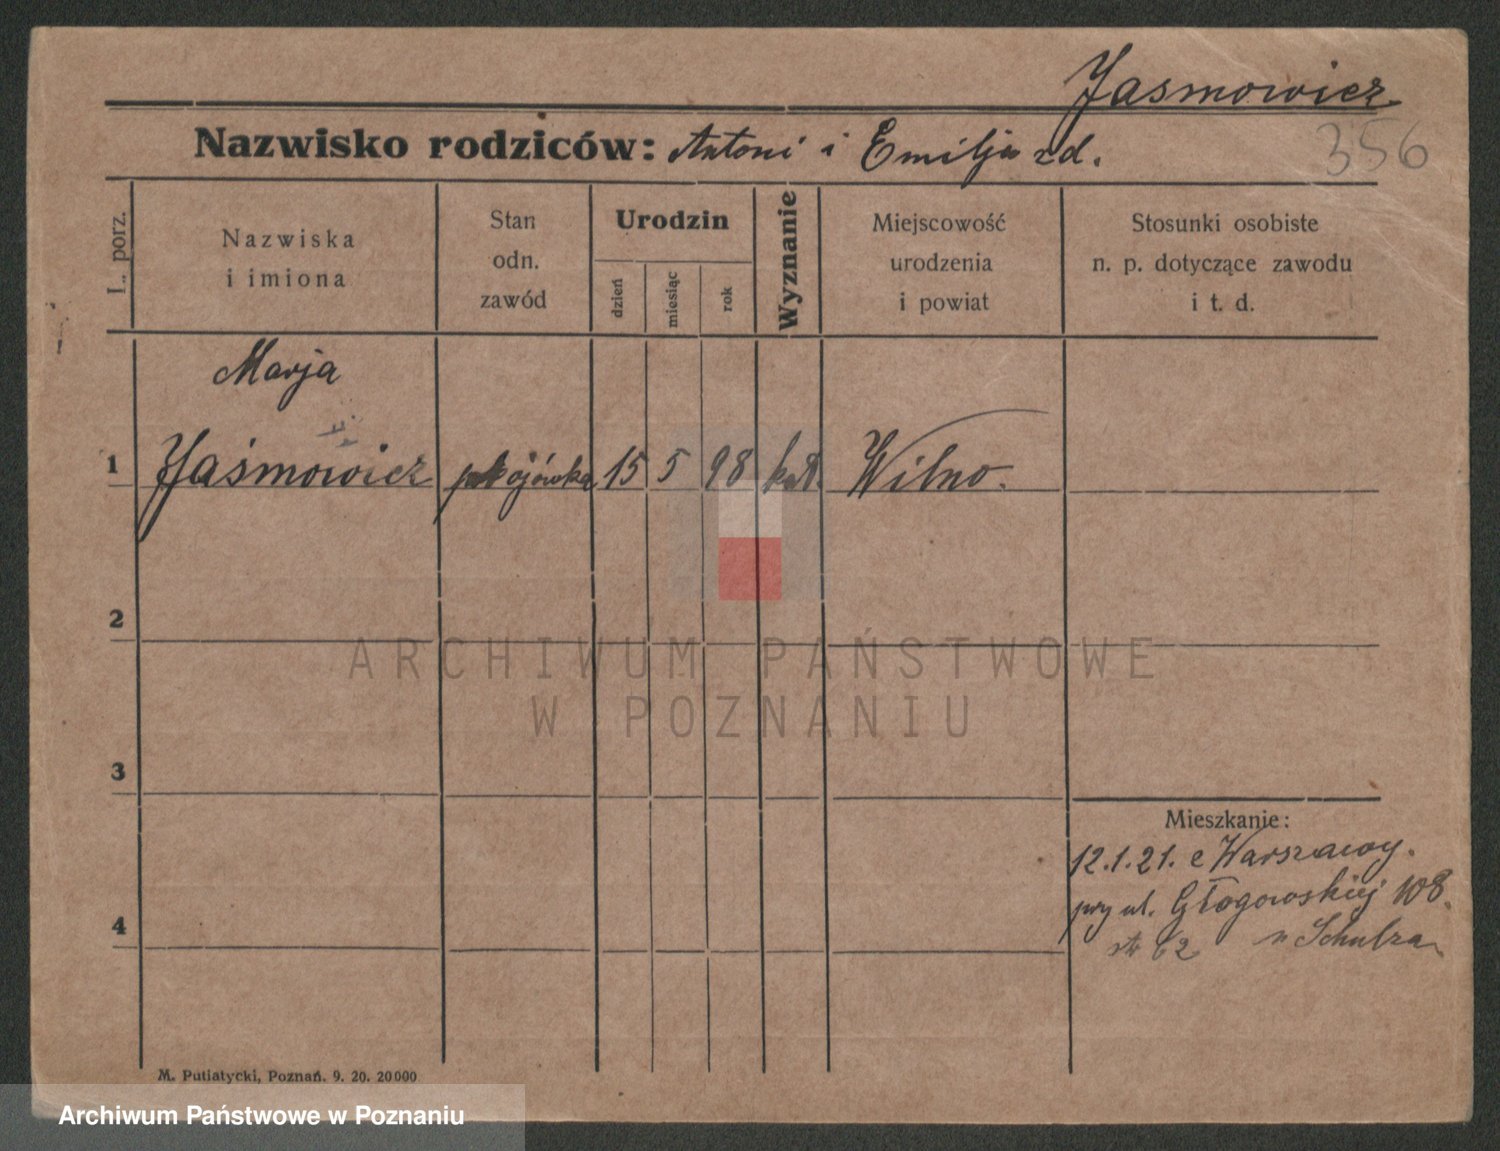 Jasmowicz
Nazwisko rodziców: Antoni i Emilja zd.
356
L. porz.
Nazwiska
i imiona
Stan
odn.
zawód
Urodzin
dzień
miesiąc
rok
Wyznanie
Miejscowość
urodzenia
i powiat
Stosunki osobiste
n. p. dotyczące zawodu
i t. d.
Marja
1 Jaśmowicz pokojówka 15 5 98 kat. Wilno.
2
ARCHIWUM PAŃSTWOWE
W POZNANIU
3
Mieszkanie:
12.1.21. z Warszawy.
przy ul. Głogowskiej 108.
62 u Schulza
4
M. Putiatycki, Poznań. 9. 20. 20000
Archiwum Państwowe w Poznaniu